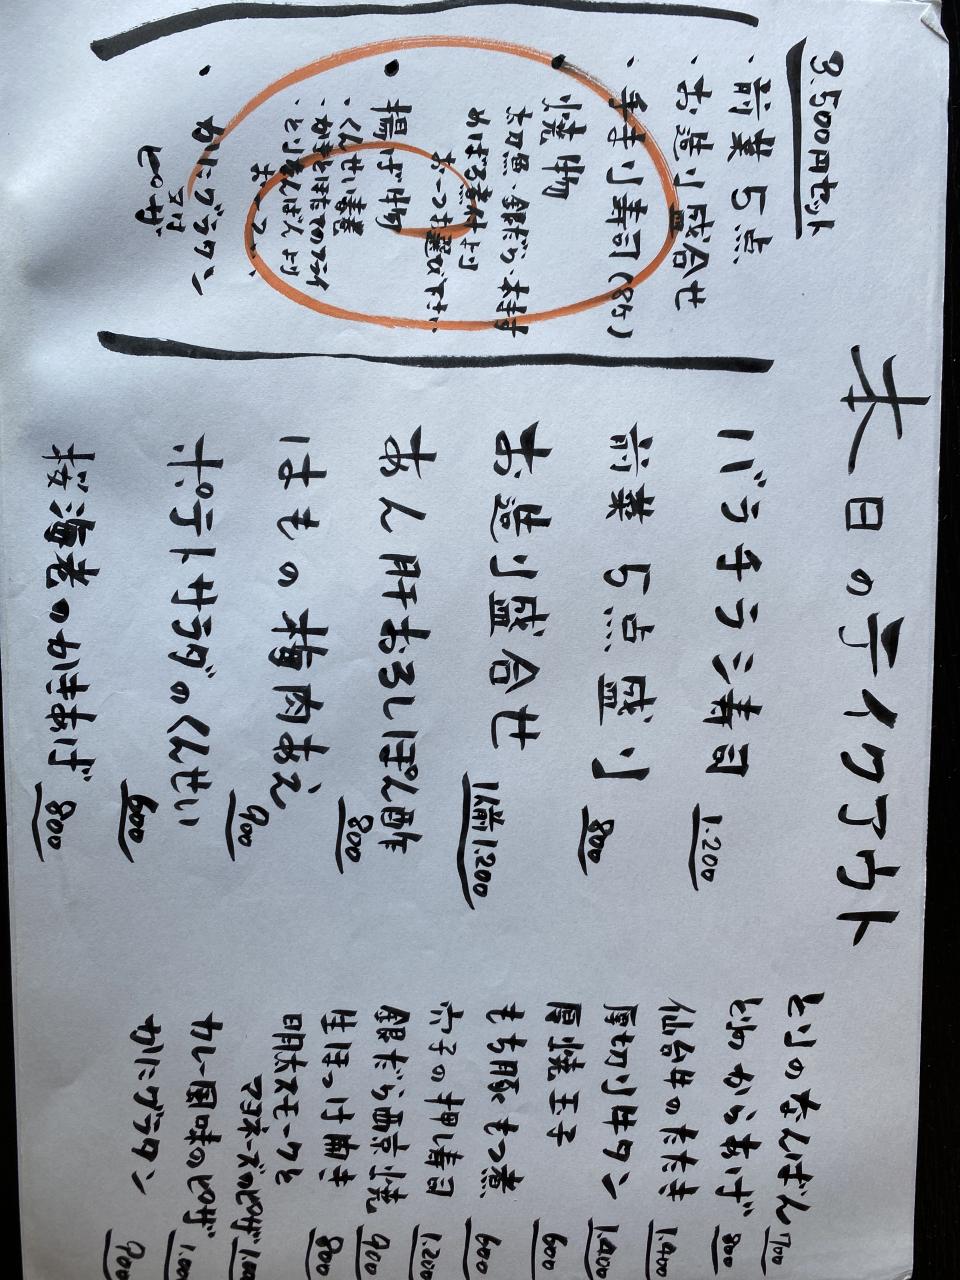 本日のテイクアウト
3.500円セット
・前菜5点
・お造り盛合せ
・手まり寿司(8ケ)
・焼物
かぶと煮付より
お一つお選び下さい
・揚げ物
・くんせい春巻
お一つ
・かにグラタン
又は
ピザ
バラチラシ寿司 1.200
前菜5点盛り 800
お造り盛合せ 1人前1.200
あん肝おろしぽん酢 800
はもの梅肉あえ 900
ポテトサラダのくんせい 600
桜海老のかきあげ 800
とりのなんばん 700
とりのからあげ 800
仙台牛のたたき 1.400
厚切り牛タン 1.400
厚焼玉子 600
もち豚もつ煮 600
穴子の押し寿司 1.200
銀だら西京焼 900
生ほっけ開き 800
明太スモークと
マヨネーズのピザ 1.000
カレー風味のピザ 1.000
かにグラタン 900